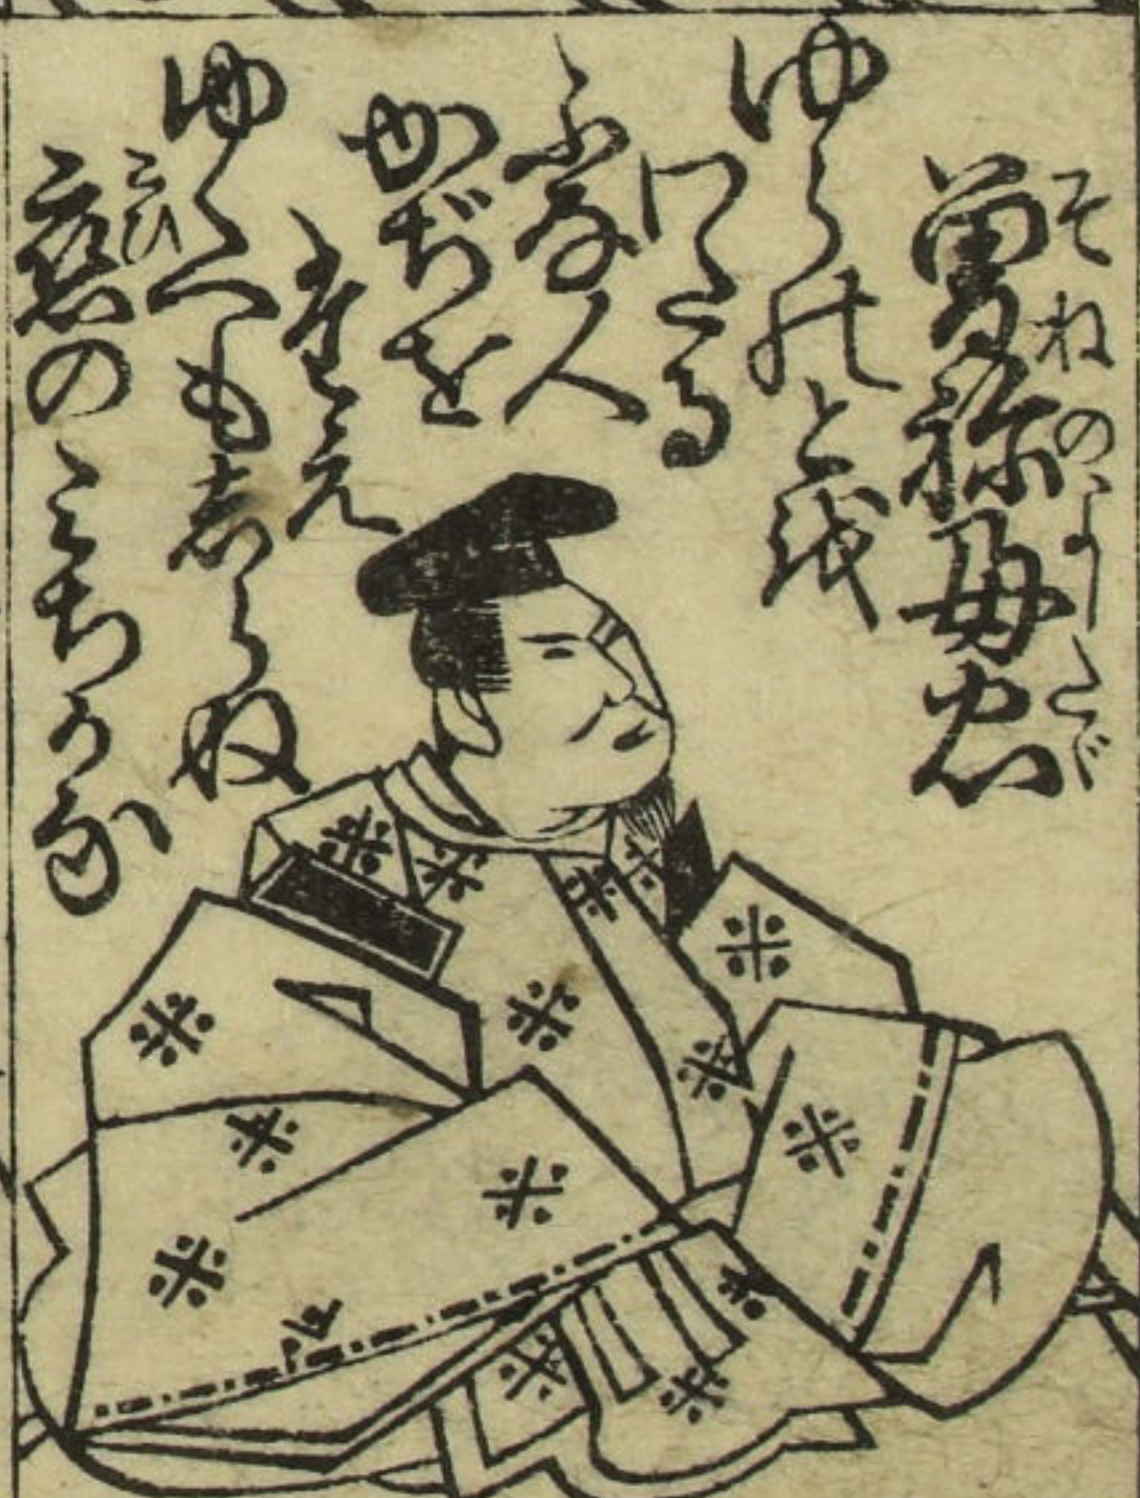 曽祢好忠
そねのよしたゞ
ゆらのとを
わたる
ふな人
かぢを
たえ
ゆくへもしらぬ
こひ
恋のみちかな